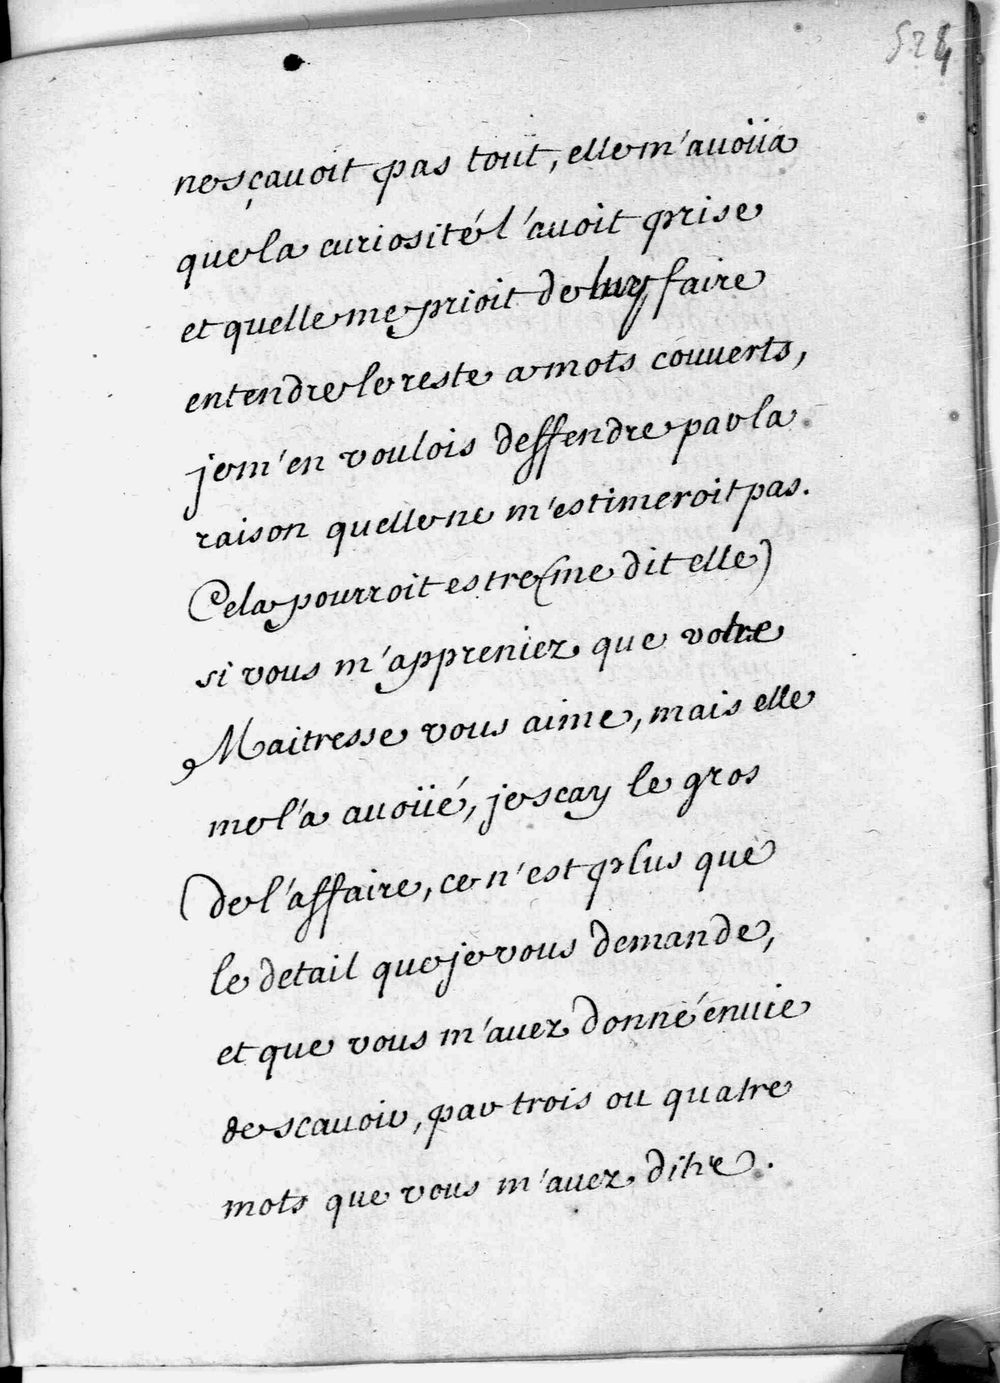 524
ne sçavoit pas tout, elle m'auoüa
que la curiosité l'auoit prise
et quelle me prioit de luy faire
entendre le reste a mots couuerts,
je m'en voulois deffendre par la
raison quelle ne m'estimeroit pas.
Cela pourroit estre (me dit elle)
si vous m'appreniez que votre
Maitresse vous aime, mais elle
me l'a auoüé, je scay le gros
de l'affaire, ce n'est plus que
le detail que je vous demande,
et que vous m'auez donné enuie
de scauoir, par trois ou quatre
mots que vous m'auez dit